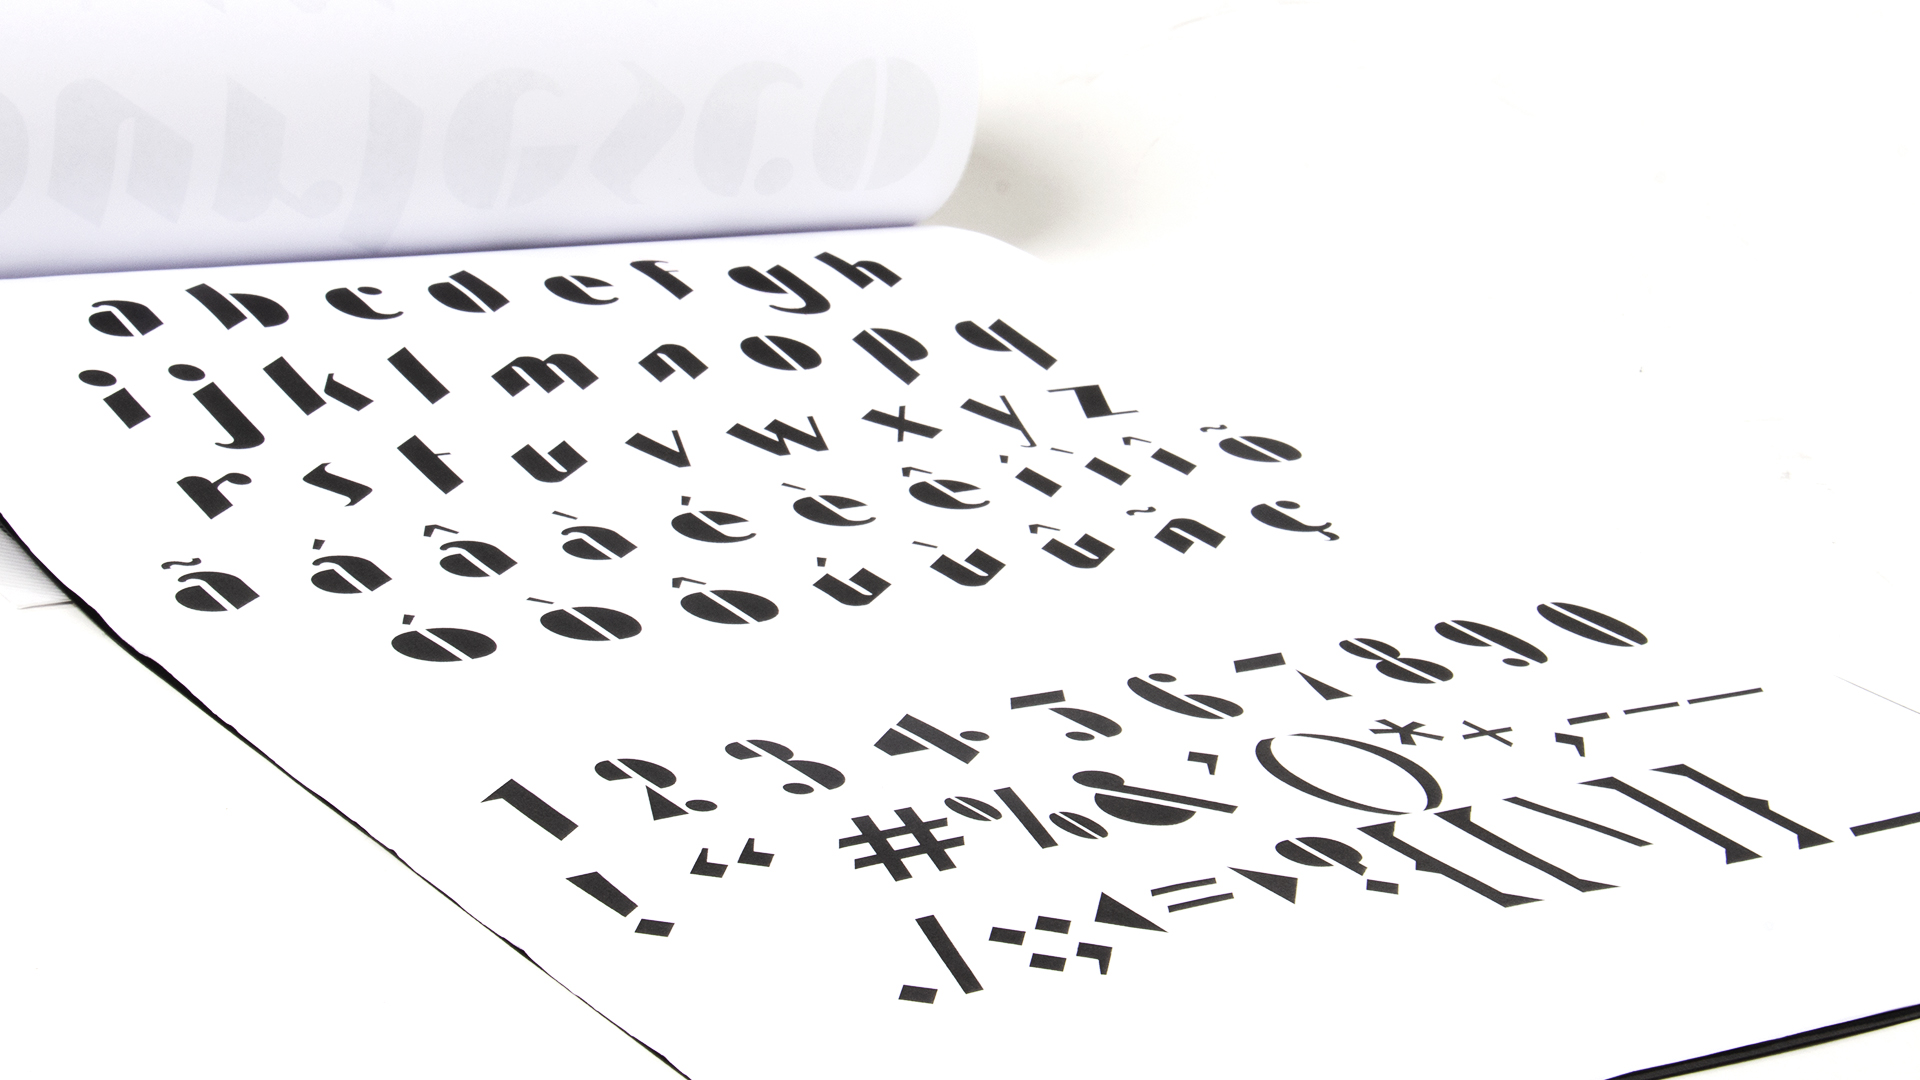 a b c d e f g h
i j k l m n o p q
r s t u v w x y z
ã á â à é è ê í ì î õ
ó ò ô ú ù û ñ ç
1 2 3 4 5 6 7 8 9 0
! “ # % & ’ ( ) * + , - – —
. / : ; < = > ? { [ \ ] } _